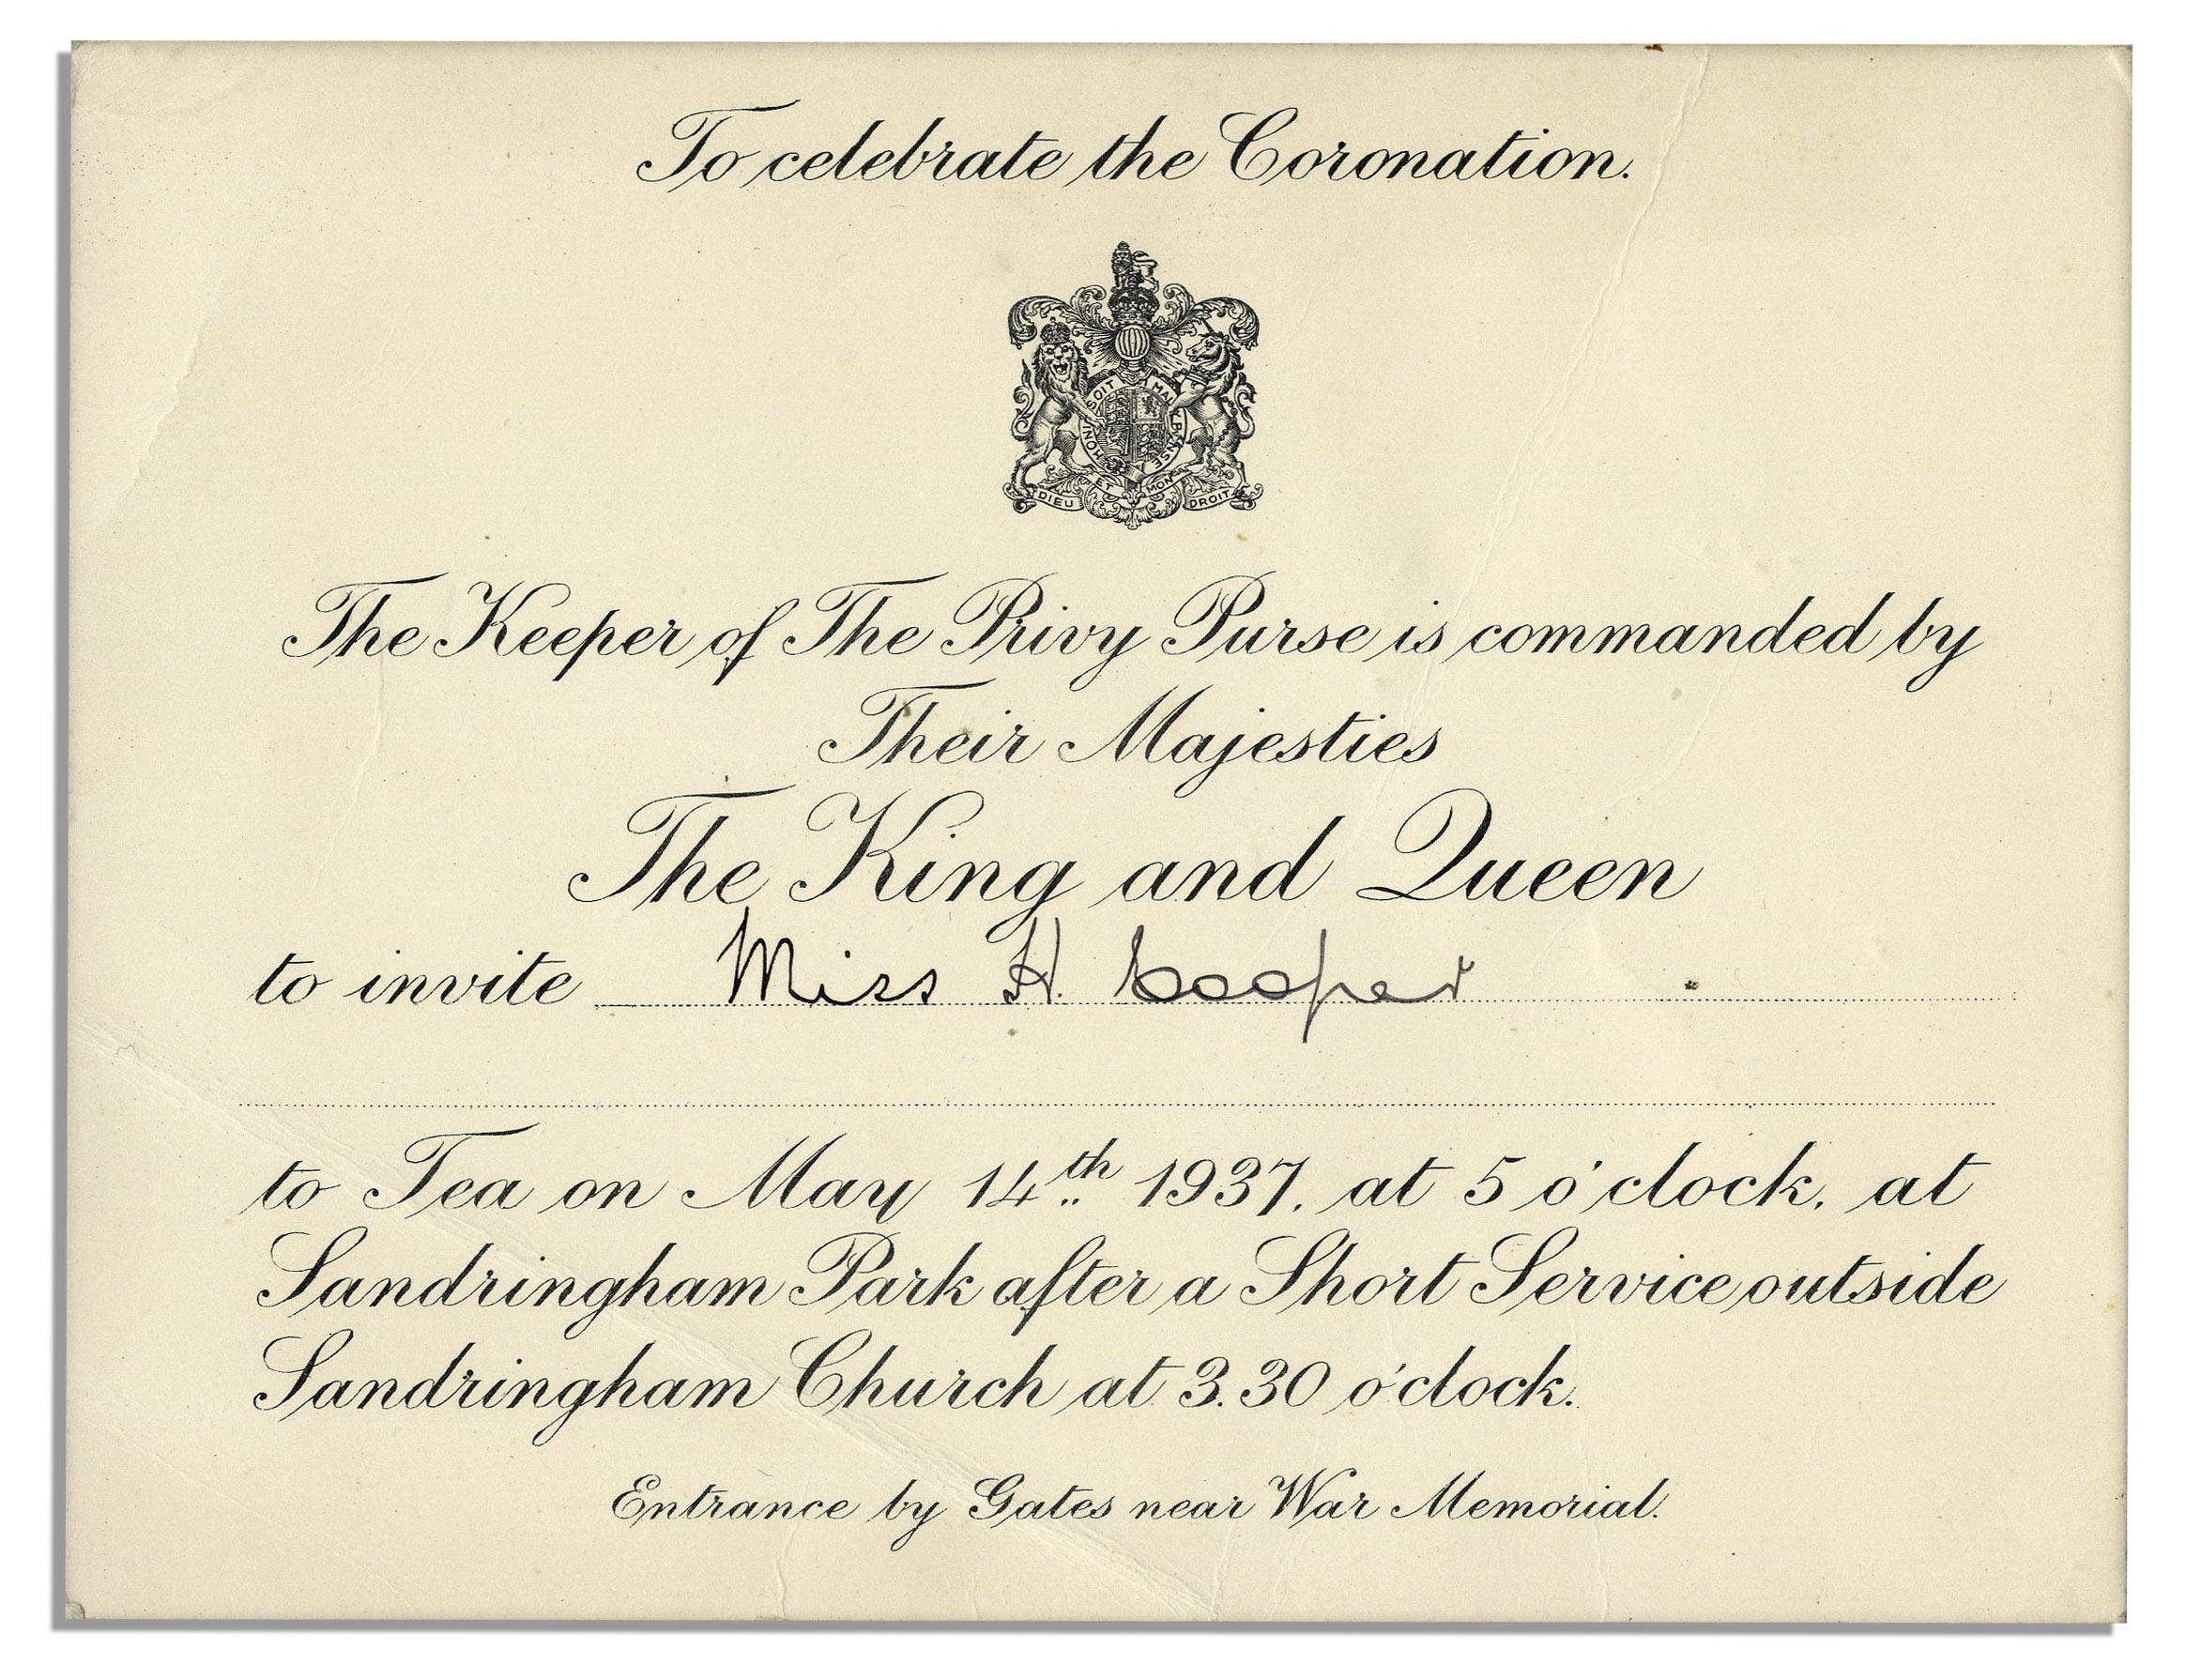 To celebrate the Coronation.
HONI SOIT QUI MAL Y PENSE
DIEU ET MON DROIT
The Keeper of The Privy Purse is commanded by
Their Majesties
The King and Queen
to invite Miss H. Cooper
to Tea on May 14th 1937, at 5 o'clock, at
Sandringham Park after a Short Service outside
Sandringham Church at 3.30 o'clock.
Entrance by Gates near War Memorial.